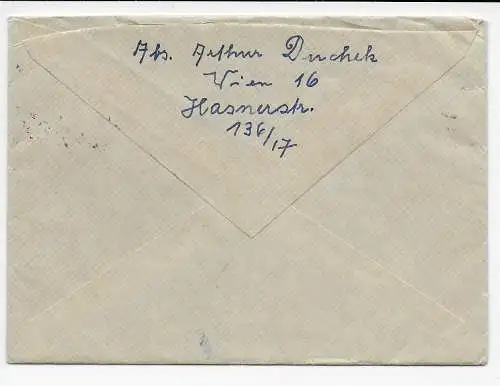 Abs. Arthur Duchek
Wien 16
Hasnerstr.
136/17